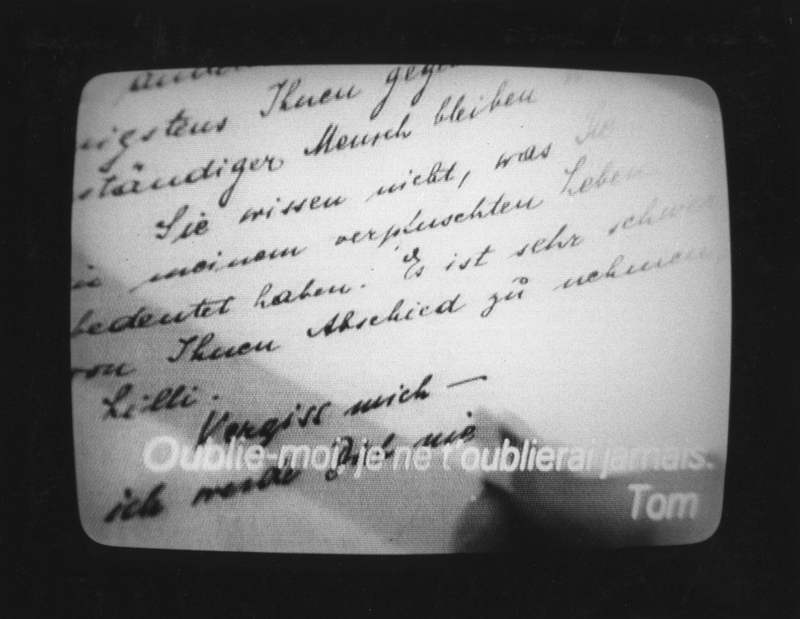 nigstens Ihnen gege
ständiger Mensch bleiben
Sie wissen nicht, was Sie
in meinem verpfuschten Leben
bedeutet haben. Es ist sehr schwer
von Ihnen Abschied zu nehmen,
Lilli.
Vergiss mich —
ich werde Dich nie
Oublie-moi, je ne t'oublierai jamais.
Tom